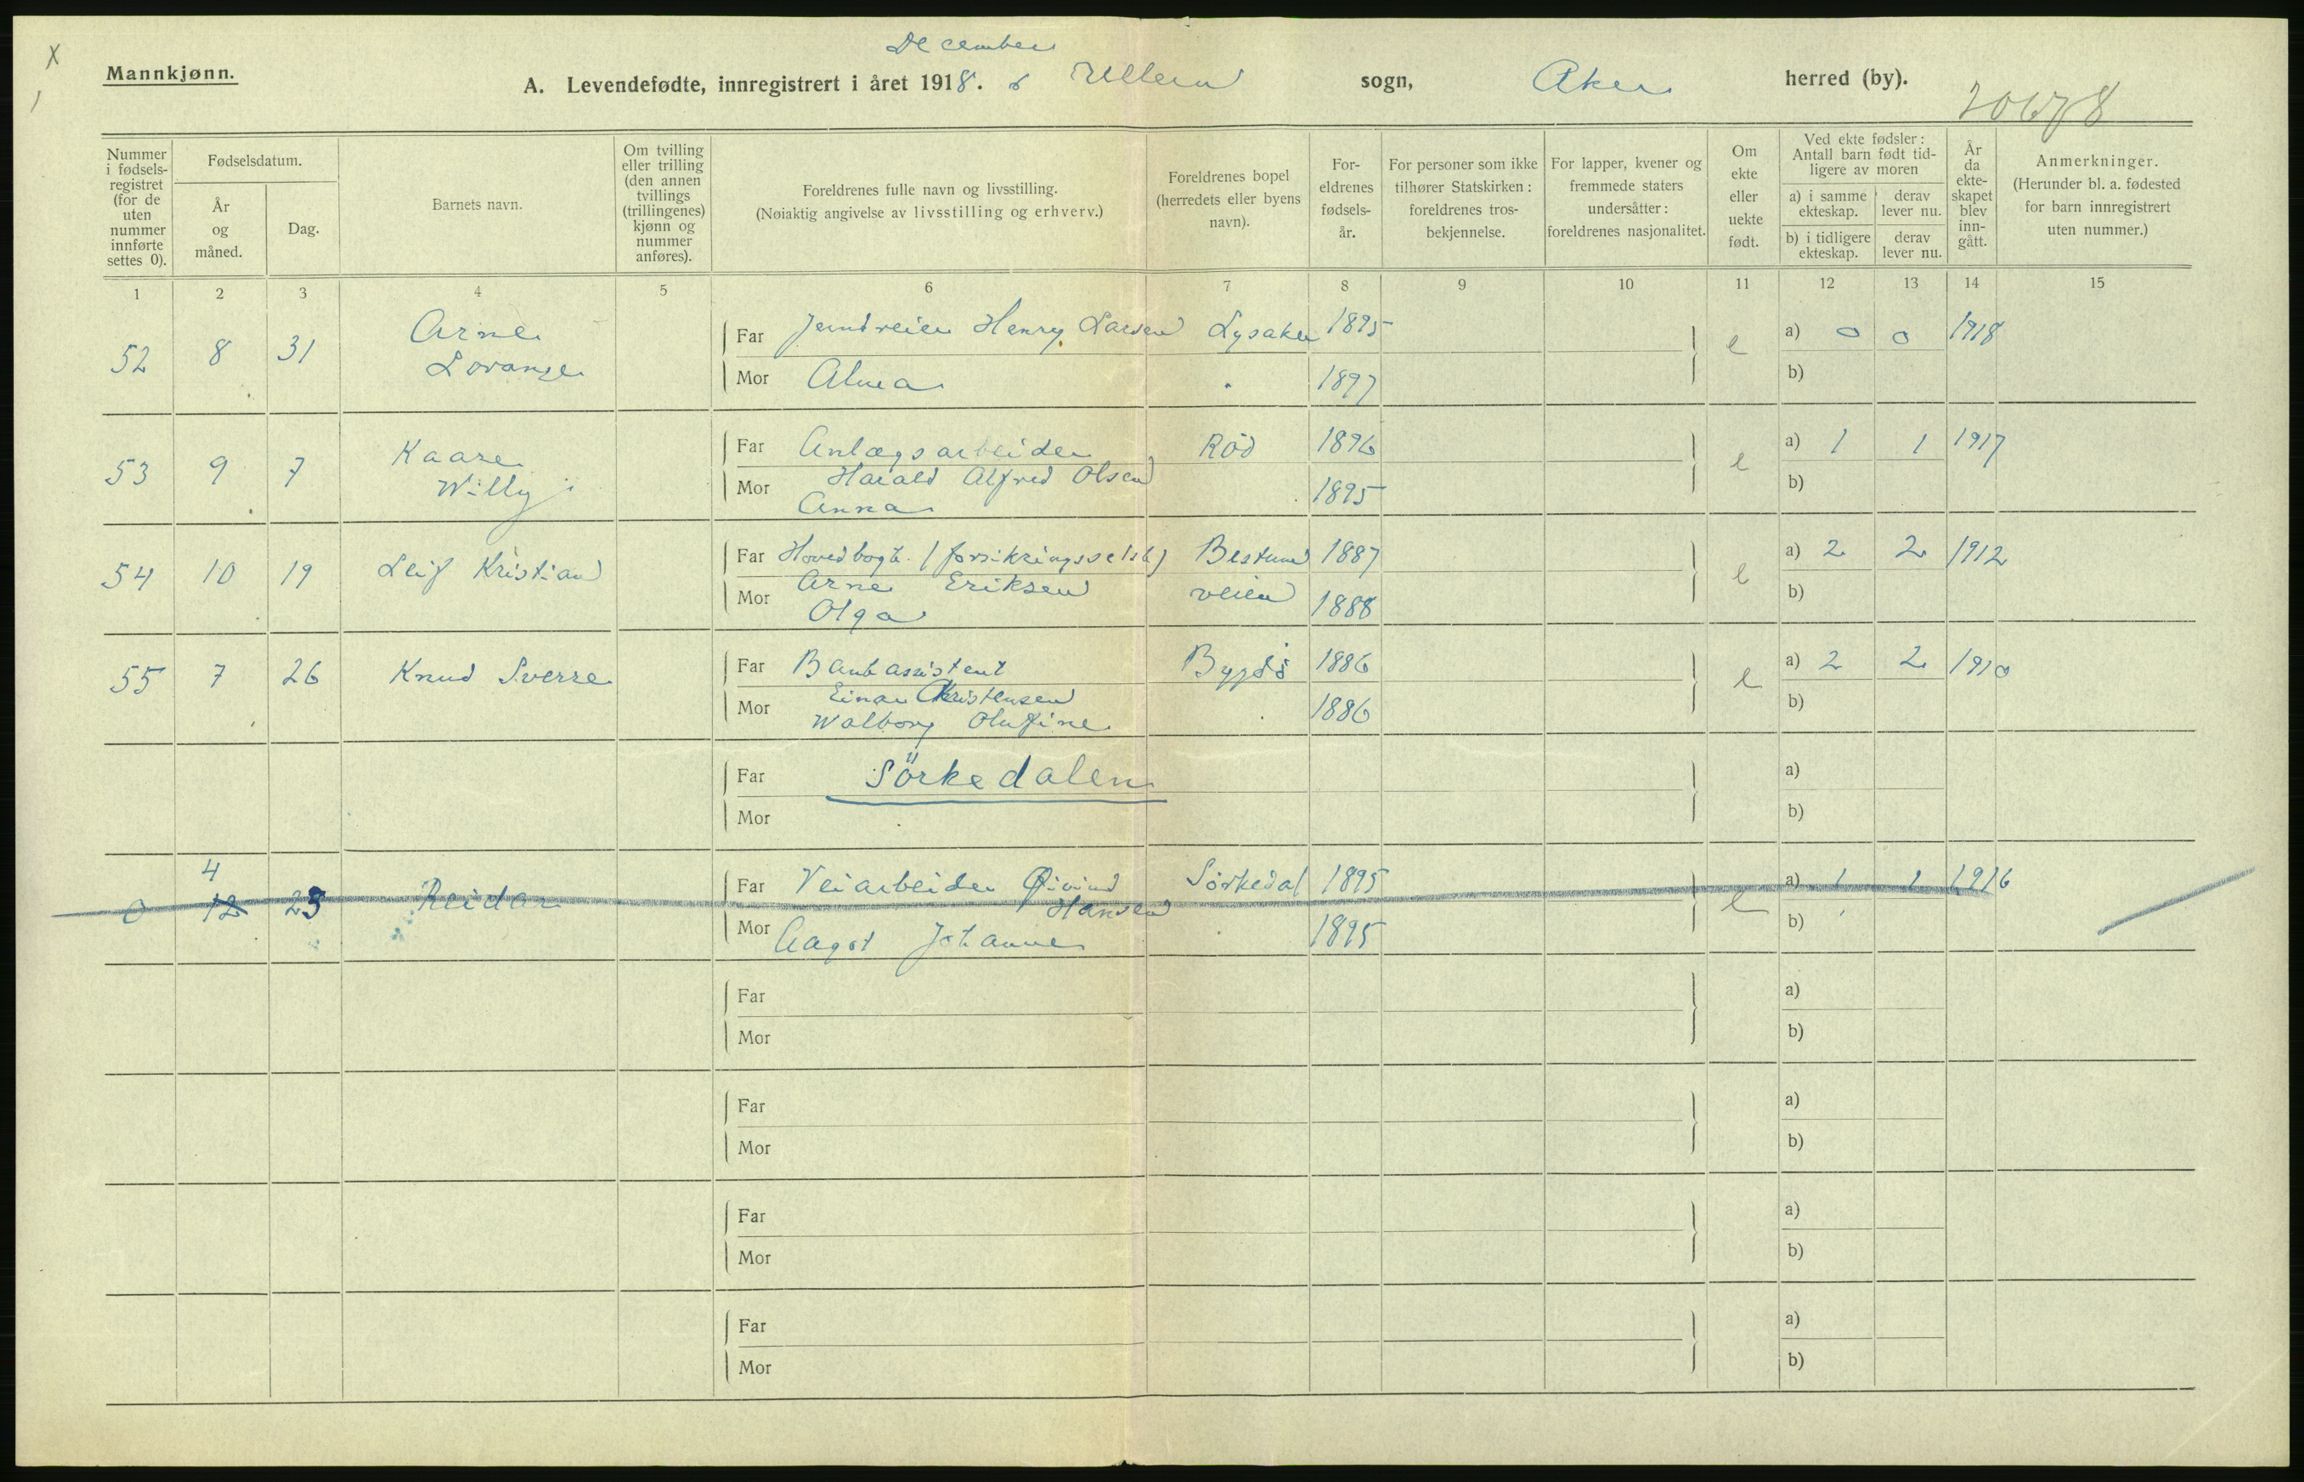 December
Mannkjønn.
A. Levendefødte, innregistrert i året 1918. Ullern sogn, Aker herred (by).
20678
Nummer i fødsels-registret (for de uten nummer innførte settes 0).
Fødselsdatum.
År og måned.
Dag.
Barnets navn.
Om tvilling eller trilling (den annen tvillings (trillingenes) kjønn og nummer anføres).
Foreldrenes fulle navn og livsstilling.
(Nøiaktig angivelse av livsstilling og erhverv.)
Foreldrenes bopel (herredets eller byens navn).
For-eldrenes fødsels-år.
For personer som ikke tilhører Statskirken: foreldrenes tros-bekjennelse.
For lapper, kvener og fremmede staters undersåtter: foreldrenes nasjonalitet.
Om ekte eller uekte født.
Ved ekte fødsler: Antall barn født tid-ligere av moren
a) i samme ekteskap.
derav lever nu.
b) i tidligere ekteskap.
derav lever nu.
År da ekte-skapet blev inn-gått.
Anmerkninger.
(Herunder bl. a. fødested for barn innregistrert uten nummer.)
1 2 3 4 5 6 7 8 9 10 11 12 13 14 15
52 8 31 Arne Lorange
Far Henry Larsen Lysaker 1895 e a) 0 0 1918
Mor Alma " 1897 b)
53 9 7 Kaare Willy
Far Anlægsarbeider Rød 1896 e a) 1 1 1917
Harald Alfred Olsen
Mor Anna 1895 b)
54 10 19 Leif Kristian
Far Hovedbogh. Bestum 1887 e a) 2 2 1912
Arne Eriksen veien
Mor Olga 1888 b)
55 7 26 Knud Sverre
Far Bankassistent Bygdö 1886 e a) 2 2 1910
Einar Christensen
Mor Walborg Olufine 1886 b)
Far Sörkedalen a)
Mor b)
4
0 12 23 Reidar
Far Veiarbeider Øivind Sörkedal 1895 e a) 1 1 1916
Hansen
Mor Aagot Johanne 1895 b)
Far a)
Mor b)
Far a)
Mor b)
Far a)
Mor b)
Far a)
Mor b)